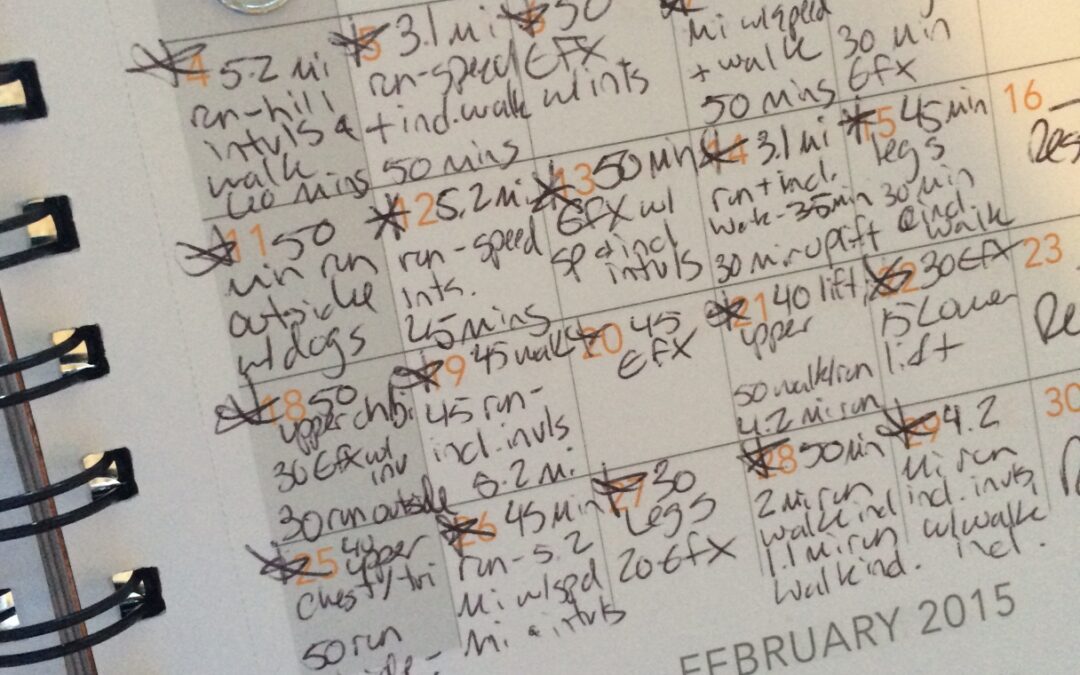 4 5.2 mi
run-hill
intvls &
walk
60 mins
5 3.1 mi
run-speed
+ ind. walk
50 mins
6 50
EFX
w/ints
mi w/speed
+ walk
50 mins
30 min
EFX
11 50
min run
outside
w/dogs
12 5.2 mi
run-speed
ints.
45 mins
13 50 min
EFX w/
sp & incl
intvls
14 3.1 mi
run + incl.
walk-35min
30 min uplift
15 45 min
legs
30 min
@ incl.
walk
16
18 50
upper ch/bi
30 EFX w/
inv
30 run outside
19 45 walk &
45 run-
incl. invls
5.2 mi
20 45
EFX
21 40 lift,
upper
50 walk/run
4.2 mi run
22 30 EFX
15 Lower
lift
23
25 40 upper
chest/tri
50 run
26 45 min
run-5.2
mi w/spd
mi & intvls
27 30
Legs
20 EFX
28 50 min
2 mi run
walk ind
1.1 mi run
walk ind.
29 4.2
mi run
incl. invls
w/walk
incl.
30
FEBRUARY 2015